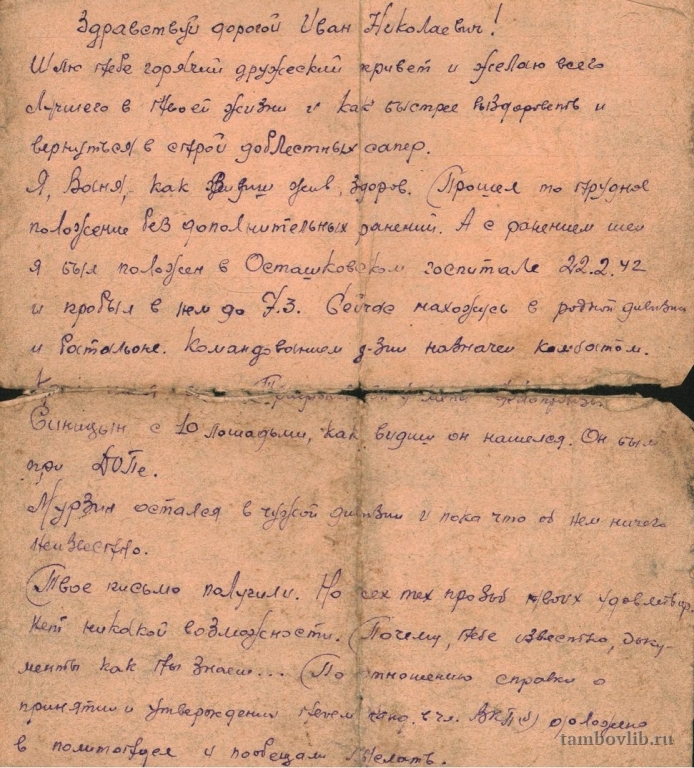 Здравствуй дорогой Иван Николаевич!
Шлю тебе горячий дружеский привет и желаю всего
лучшего в твоей жизни и как быстрее выздороветь и
вернуться в строй доблестных сапер.
Я, Ваня, как видиш жив, здоров. Прошел то трудное
положение без дополнительных ранений. А с ранением шеи
я был положен в Осташковском госпитале 22.2.42
и пробыл в нем до 7.3. Сейчас нахожусь в родной дивизии
и батальоне. Командованием д-зии назначен комбатом.
у меня
Синицын с 10 лошадьми, как видиш он нашелся. Он был
при ДОПе.
Мурзин остался в чужой дивизии и пока что об нем ничего
неизвестно.
Твое письмо получили. Но всех тех прозьб твоих удовлетвор.
нет никакой возможности. Почему, тебе известно, доку-
менты как ты знаеш... По отношению справки о
принятии и утверждении тебя канд. в чл. ВКП(б) доложено
в политотдел и пообещали сделать.
tambovlib.ru